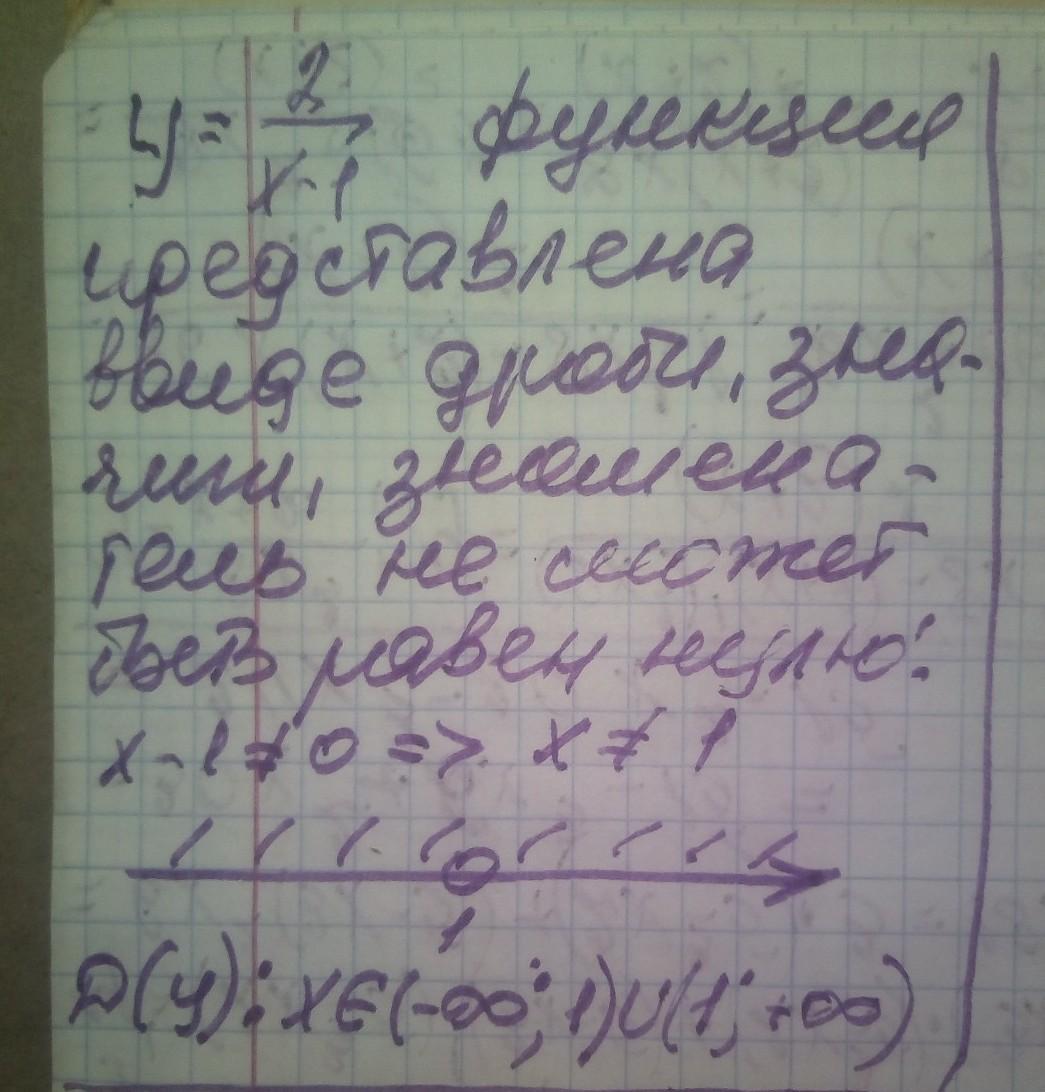 y = 2/(x-1) функция
представлена
ввиде дроби, зна-
чит, знамена-
тель не может
быть равен нулю:
x-1≠0 => x≠1
1
D(y): x∈(-∞; 1)∪(1; +∞)